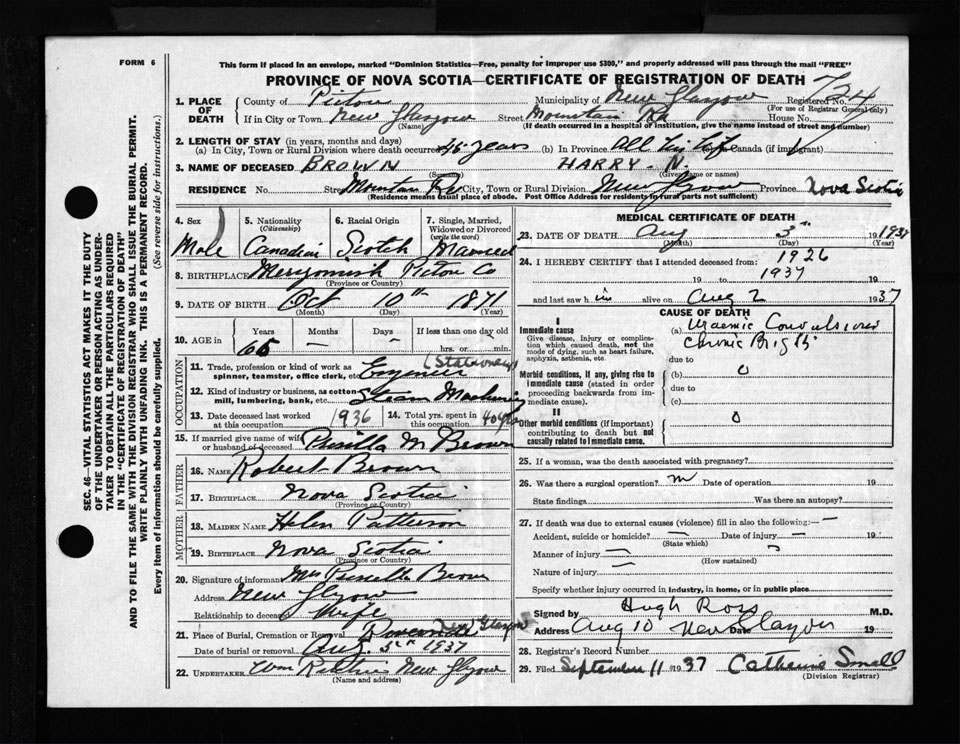 FORM 6
This form if placed in an envelope, marked "Dominion Statistics—Free, penalty for improper use $300," and properly addressed will pass through the mail "FREE"
PROVINCE OF NOVA SCOTIA—CERTIFICATE OF REGISTRATION OF DEATH
1. PLACE OF DEATH
County of Pictou Municipality of New Glasgow Registered No. 724
(For use of Registrar General only)
If in City or Town New Glasgow Street Mountain Rd House No.
(Name) (If death occurred in a hospital of institution, give the name instead of street and number)
2. LENGTH OF STAY (in years, months and days)
(a) In City, Town or Rural Division where death occurred 46 years (b) In Province All his life (c) Canada (if immigrant)
3. NAME OF DECEASED BROWN HARRY. N.
(Given name or names)
RESIDENCE No. Street Mountain Rd City, Town or Rural Division New Glasgow Province Nova Scotia
(Residence means usual place of abode. Post Office Address for residents in rural parts not sufficient)
SEC. 46—VITAL STATISTICS ACT MAKES IT THE DUTY
OF THE UNDERTAKER OR PERSON ACTING AS UNDER-
TAKER TO OBTAIN ALL THE PARTICULARS REQUIRED
IN THE "CERTIFICATE OF REGISTRATION OF DEATH"
AND TO FILE THE SAME WITH THE DIVISION REGISTRAR WHO SHALL ISSUE THE BURIAL PERMIT.
WRITE PLAINLY WITH UNFADING INK. THIS IS A PERMANENT RECORD.
Every item of information should be carefully supplied. (See reverse side for instructions.)
4. Sex 5. Nationality (Citizenship) 6. Racial Origin 7. Single, Married, Widowed or Divorced (write the word)
Male Canadian Scotch Married
8. BIRTHPLACE Merigomish Pictou Co
(Province or Country)
9. DATE OF BIRTH Oct 10th 1871
(Month) (Day) (Year)
10. AGE in Years Months Days If less than one day
65 — — hrs. or min.
OCCUPATION
11. Trade, profession or kind of work as spinner, teamster, office clerk, etc. Engineer (Stationary)
12. Kind of industry or business, as cotton mill, lumbering, bank, etc. Steam Machinery
13. Date deceased last worked at this occupation 1936 14. Total yrs. spent in this occupation 40 yrs
15. If married give name of wife or husband of deceased Presilla M Brown
FATHER
16. NAME Robert Brown
17. BIRTHPLACE Nova Scotia
(Province or Country)
MOTHER
18. MAIDEN NAME Helen Patterson
19. BIRTHPLACE Nova Scotia
(Province or Country)
20. Signature of informant Mrs Presilla Brown
Address New Glasgow
Relationship to deceased Wife
21. Place of Burial, Cremation or Removal New Glasgow
Date of burial or removal Aug. 5th 1937
22. UNDERTAKER Wm New Glasgow
(Name and address)
MEDICAL CERTIFICATE OF DEATH
23. DATE OF DEATH Aug 3rd 1937
(Month) (Day) (Year)
24. I HEREBY CERTIFY that I attended deceased from: 1926
19 to 1937 19
and last saw him alive on Aug 2 1937
CAUSE OF DEATH
I
Immediate cause
Give disease, injury or complication which caused death, not the mode of dying, such as heart failure, asphyxia, asthenia, etc.
(a) Uraemic Convulsions
Chronic Brights
due to
Morbid conditions, if any, giving rise to immediate cause (stated in order proceeding backwards from immediate cause).
(b) 0
due to
(c)
II
Other morbid conditions (if important) contributing to death but not causally related to immediate cause.
0
25. If a woman, was the death associated with pregnancy?
26. Was there a surgical operation? no Date of operation 19
State findings Was there an autopsy?
27. If death was due to external causes (violence) fill in also the following:— —
Accident, suicide or homicide? — Date of injury — 19
(State which)
Manner of injury —
(How sustained)
Nature of injury —
Specify whether injury occurred in industry, in home, or in public place
Signed by Hugh Ross M.D.
Address Aug 10 New Glasgow Date 19
28. Registrar's Record Number
29. Filed September 11 1937 Catherine Small
(Division Registrar)